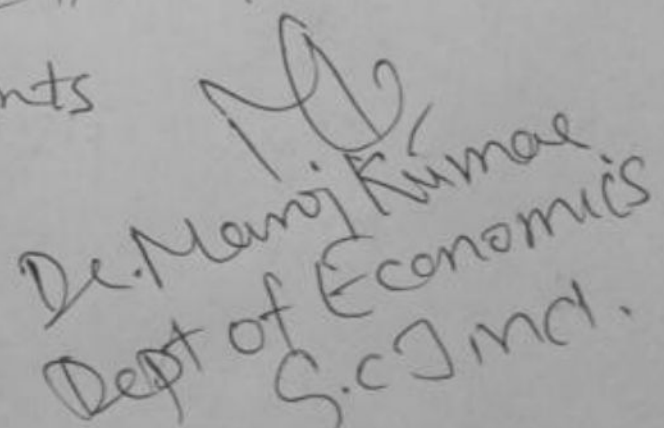 nts
Dr. Manoj Kumar
Dept of Economics